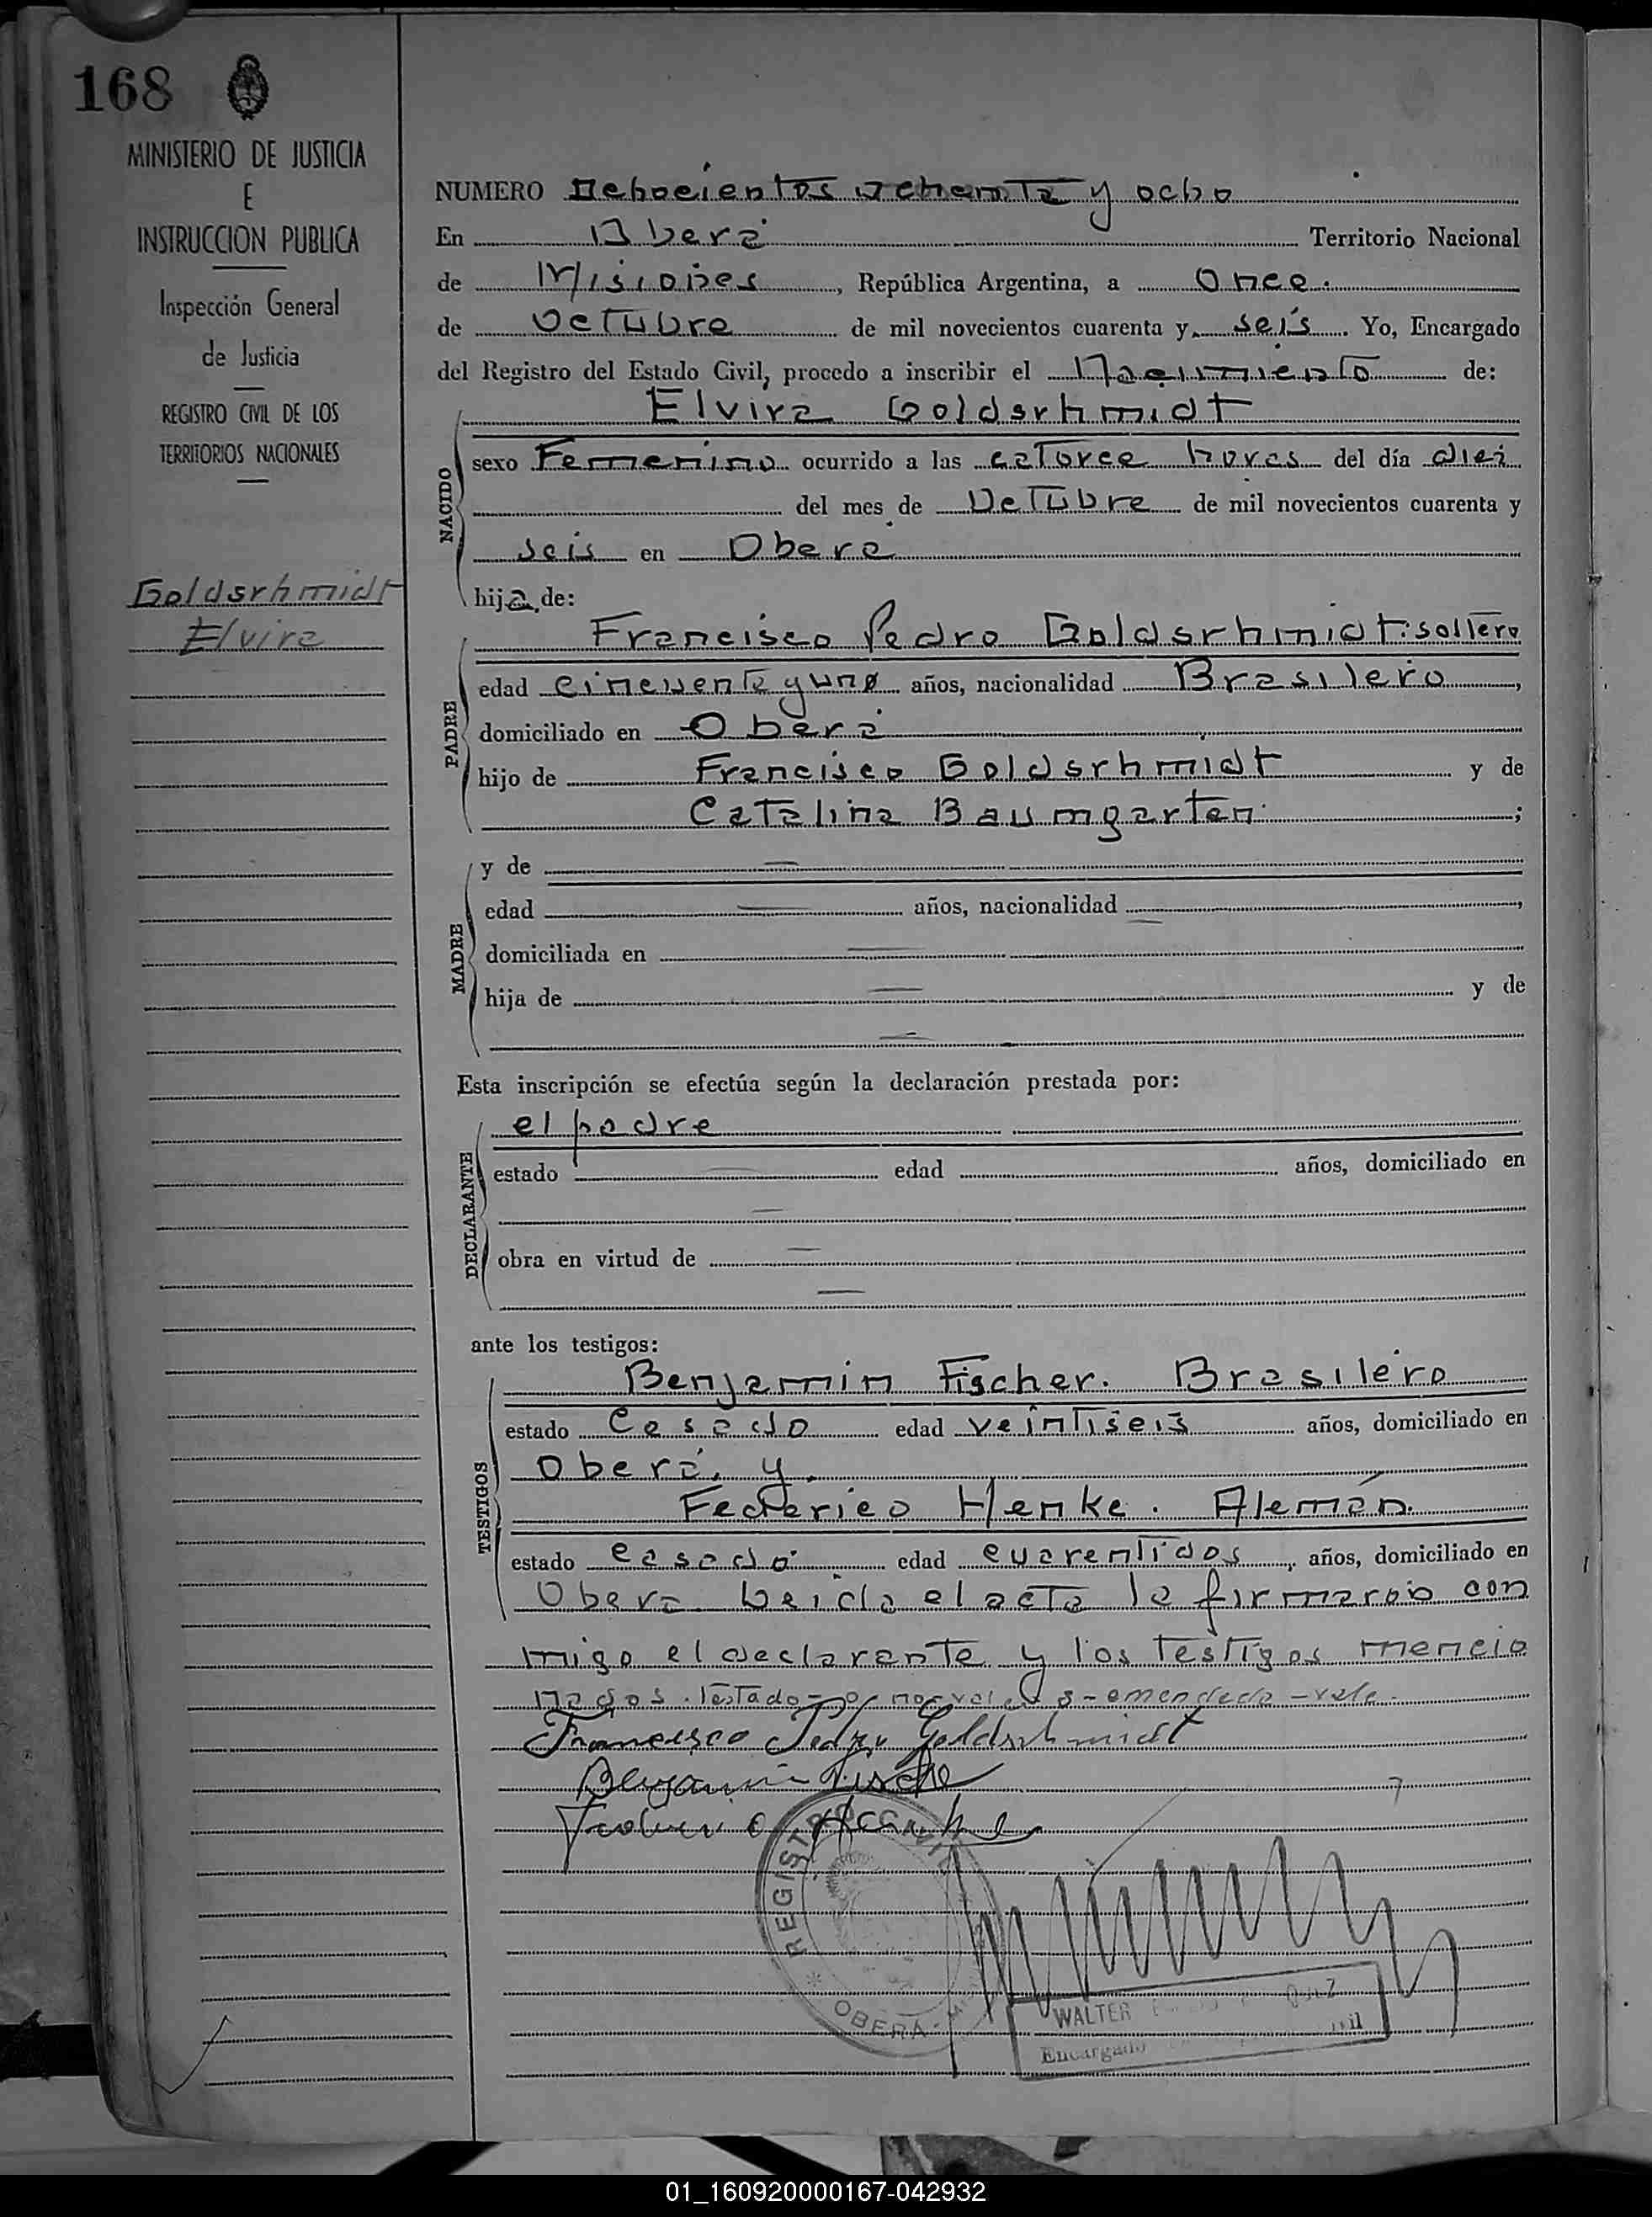 168
MINISTERIO DE JUSTICIA
E
INSTRUCCION PUBLICA
Inspección General
de Justicia
REGISTRO CIVIL DE LOS
TERRITORIOS NACIONALES
Goldsrhmidt
Elvira
NUMERO Ochocientos ochenta y ocho
En Oberá Territorio Nacional
de Misiones, República Argentina, a Once.
de Octubre de mil novecientos cuarenta y seis. Yo, Encargado
del Registro del Estado Civil, procedo a inscribir el Nacimiento de:
NACIDO
Elvira Goldsrhmidt
sexo Femenino ocurrido a las catorce horas del día diez
del mes de Octubre de mil novecientos cuarenta y
seis en Oberá
hija de:
PADRE
Francisco Pedro Goldsrhmidt. soltero
edad cincuenta y uno años, nacionalidad Brasilero,
domiciliado en Oberá
hijo de Francisco Goldsrhmidt y de
Catalina Baumgarten ;
MADRE
y de —
edad — años, nacionalidad —,
domiciliada en —
hija de — y de
—
Esta inscripción se efectúa según la declaración prestada por:
DECLARANTE
el padre
estado — edad años, domiciliado en
—
obra en virtud de —
—
ante los testigos:
TESTIGOS
Benjamin Fischer. Brasilero
estado Casado edad veintiseis años, domiciliado en
Oberá, y
Federico Henke. Alemán.
estado casado edad cuarentidos, años, domiciliado en
Oberá. Leida el acta la firmaron con
migo el declarante y los testigos mencio
nados. Testado - no vale - emendado - vale.
Francisco Pedro Goldschmidt
Benjamin Fischer
Henke
REGISTRO CIVIL
OBERA
WALTER
Encargado
01_160920000167-042932